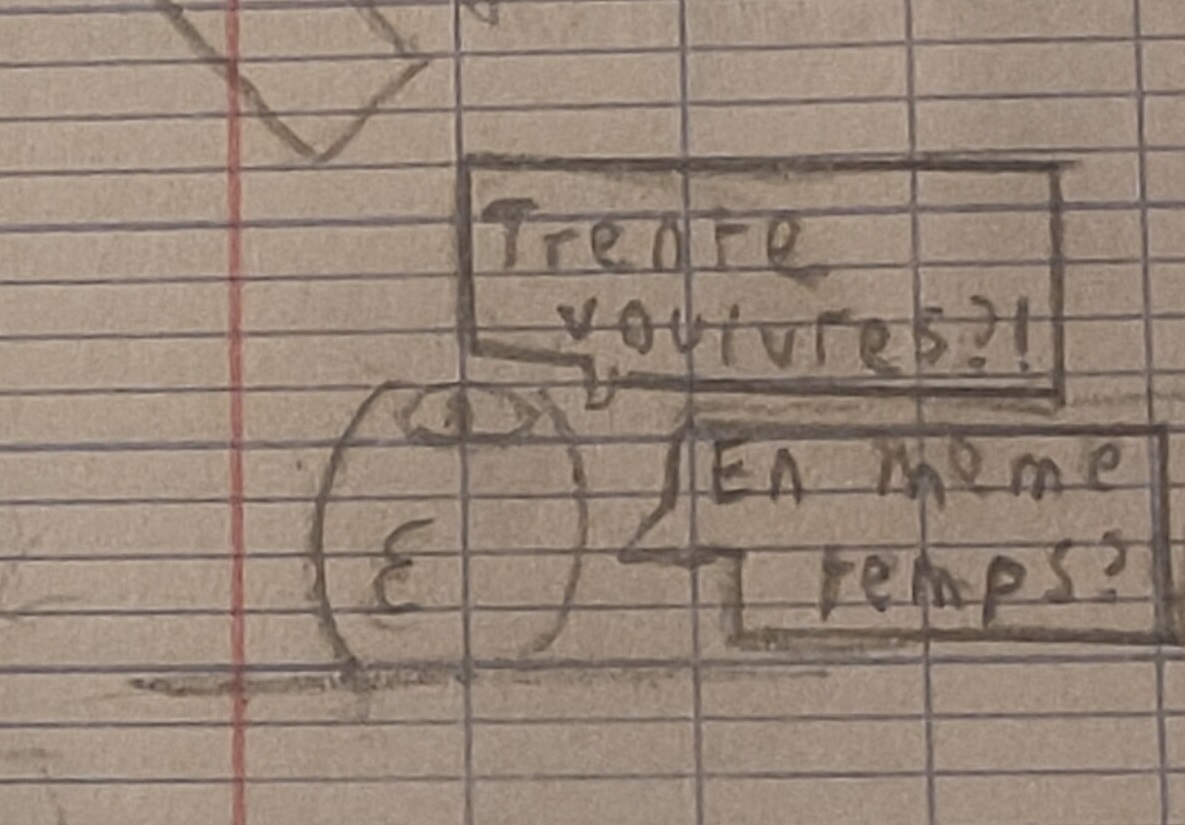 Trente
vouivres?!
En meme
temps?
ε